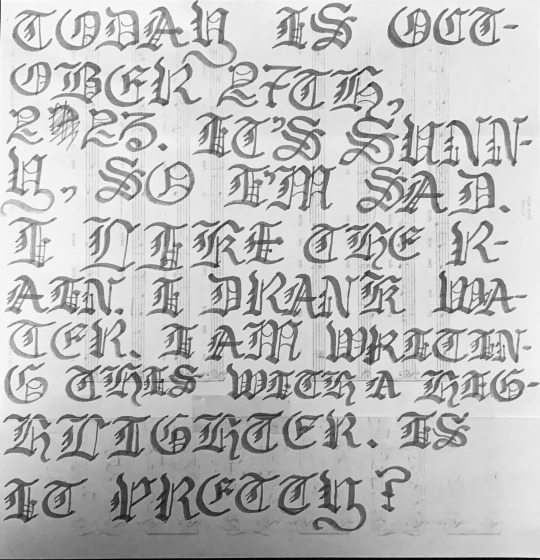 TODAY IS OCT-
OBER 27TH,
2023. IT'S SUNN-
Y, SO I'M SAD.
I LIKE THE R-
AIN. I DRANK WA-
TER. I AM WRITIN-
G THIS WITH A HIG-
HLIGHTER. IS
IT PRETTY?